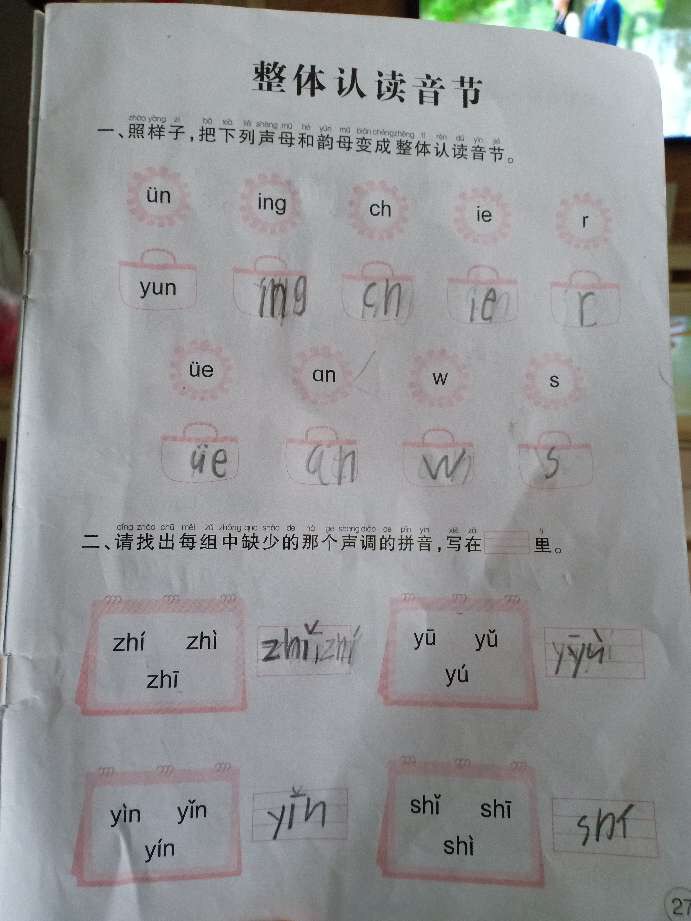 整体认读音节
zhào yàng zi bǎ xià liè shēng mǔ hé yùn mǔ biàn chéng zhěng tǐ rèn dú yīn jié
一、照样子,把下列声母和韵母变成整体认读音节。
ün ing ch ie r
yun ing ch ie r
üe an w s
üe an w s
qǐng zhǎo chū měi zǔ zhōng quē shǎo de nà gè shēng diào de pīn yīn xiě zài lǐ
二、请找出每组中缺少的那个声调的拼音,写在 里。
zhí zhì zhǐ yū yǔ yù
zhī yú
yìn yǐn yǐn shǐ shī shí
yín shì
27